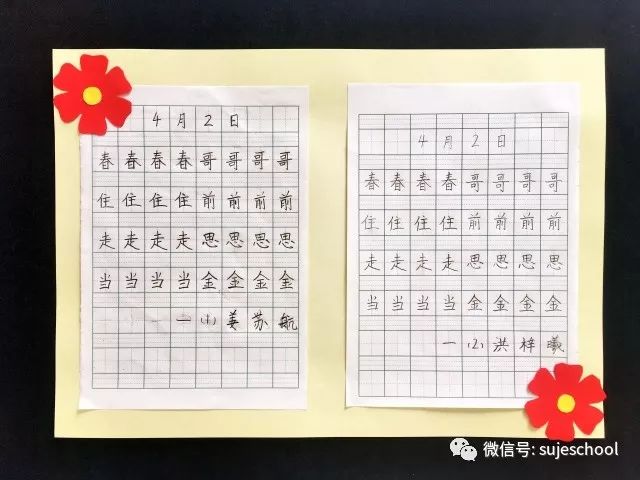 4月2日
春春春春哥哥哥哥
住住住住前前前前
走走走走思思思思
当当当当金金金金
一(1)姜苏航
4月2日
春春春春哥哥哥哥
住住住住前前前前
走走走走思思思思
当当当当金金金金
一(2)洪梓曦
微信号: sujeschool